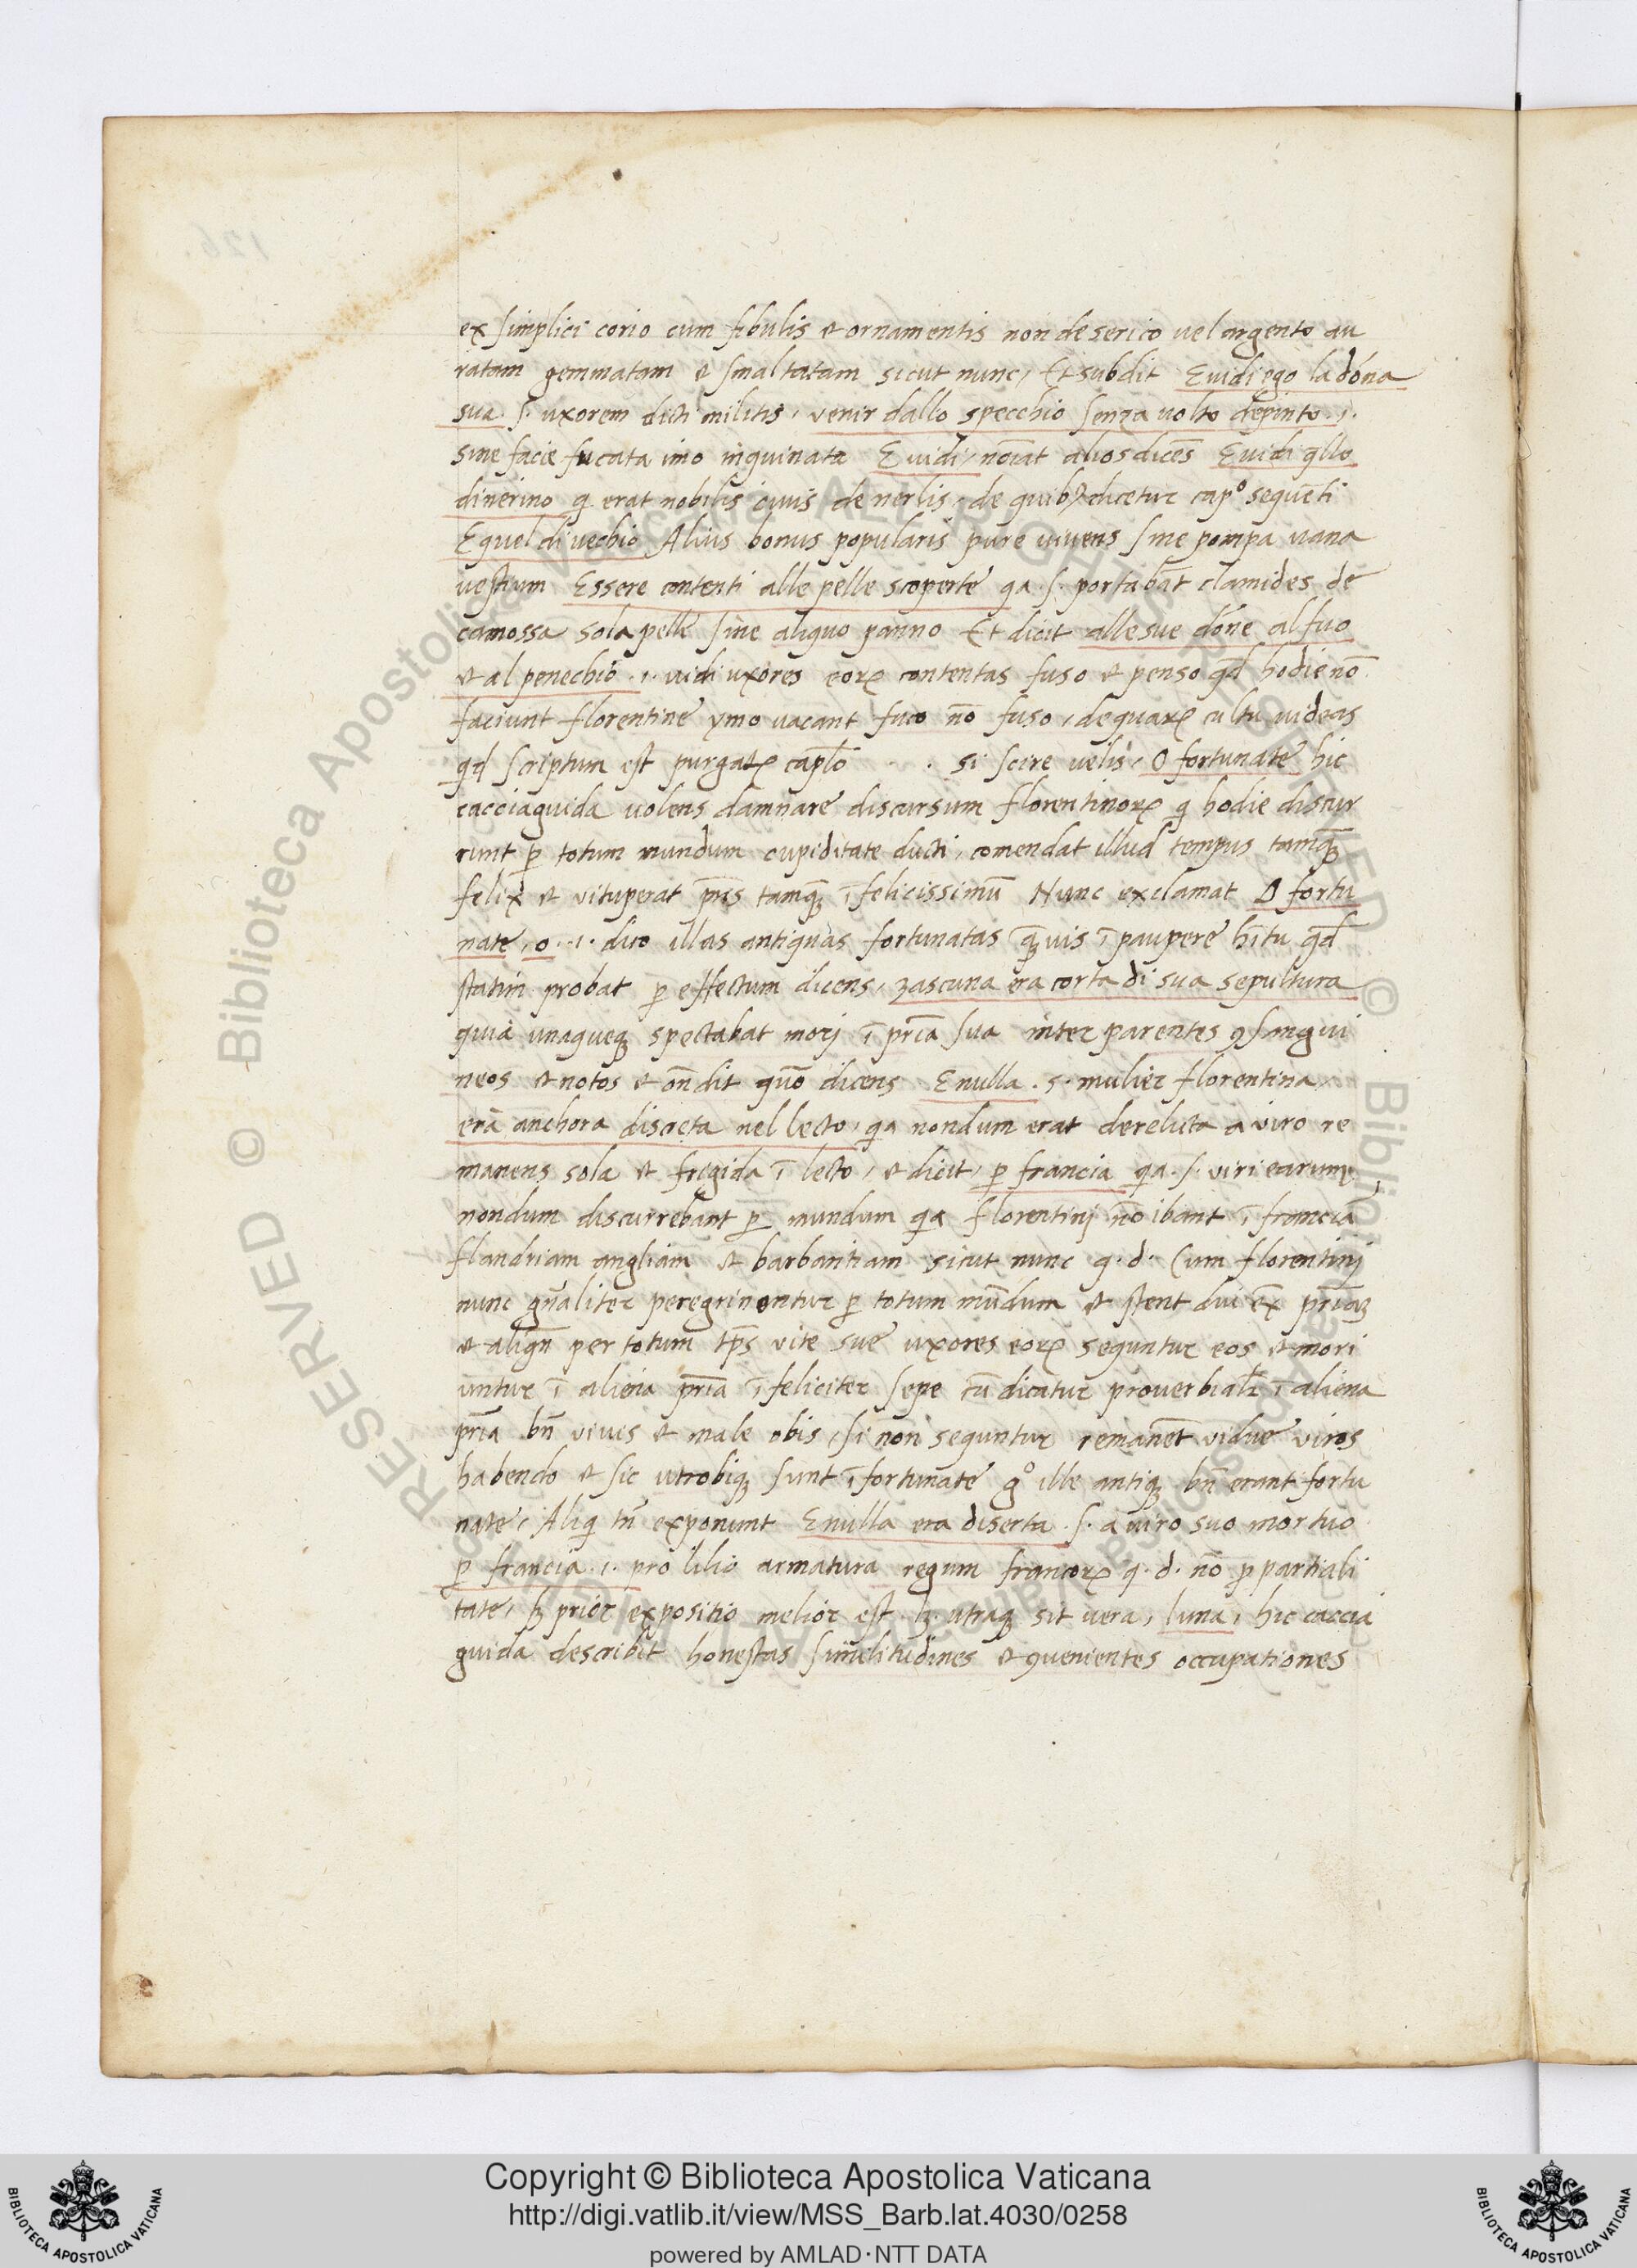 ex simplici corio cum fibulis et ornamentis non de serico uel argento au
ratam gemmatam et smaltatam sicut nunc, Et subdit Euidi ego la dōna
sua .s. uxorem dicti militis, venir dallo specchio senza uolto depinto .i.
sine facie fucata imo inquinata Euidi, noīat alios dicēs Euidi q̄llo
dinerino qi erat nobilis ciuis de nerlis, de quibꝫ dicetur capº sequēti
Equel di uechio Alius bonus popularis pure uiuens sine pompa uana
uestium Essere contenti alle pelle scoperte qa .s. portabāt clamides de
camossa sola pelle sine aliquo panno Et dicit alle sue dōne al fuo
et al penechio .i. uidi uxores eoꝝ contentas fuso et penso qđ hodie nō
faciunt florentine ymo vacant fuco nō fuso, de quaꝝ cultu uideas
qđ scriptum est purgatꝝ caplō . . si scire uelis, O fortunate hic
cacciaguida uolens damnare discursum florentinoꝝ qi hodie discur
runt ꝑ totum mundum cupiditate ducti, comendat illud tempus tamqꝫ
felix et vituperat pn̄s tamqꝫ īfelicissimū Nunc exclamat O fortu
nate, o .i. dico illas antiquas fortunatas qꝫuis ī paupere hītu qđ
statim probat ꝑ effectum dicens, zascuna era corta di sua sepultura
quia unaqueqꝫ spectabat morj ī pr̄ia sua inter parentes ꝯsangui
neos et notos et on̄dit quō dicens Enulla .s. mulier florentina
era anchora discreta nel lecto, qia nondum erat derelicta a viro re
manens sola et frigida ī lecto, et dicit, ꝑ francia qia .s. viri earum
nondum discurrebant ꝑ mundum qia florentinj nō ibant ī franciā
flandriam angliam et barbantiam sicut nunc q. d. Cum florentinj
nunc gn̄aliter peregrinentur ꝑ totum mūdum et stent diu ex pr̄iaꝫ
et aliqn̄ per totum tp̄s vite sue uxores eoꝝ sequntur eos et mori
untur ī aliena pr̄ia īfeliciter sepe cū dicatur prouerbialr̄ ī aliena
pr̄ia bn̄ viuis et male obis, si non sequntur remanēt vidue viros
habendo et sic utrobiqꝫ sunt īfortunate gº ille antiqꝫ bn̄ erant fortu
nate, Aliqi tn̄ exponunt Enulla era diserta .s. a uiro suo mortuo
ꝑ francia .i. pro lilio armatura regum francoꝝ q. d. nō ꝓ partiali
tate, sꝫ prior expositio melior est lꝫ utraqꝫ sit uera, luna, hic caccia
guida describit honestas similitudines et ꝯuenientes occupationes
Copyright © Biblioteca Apostolica Vaticana
http://digi.vatlib.it/view/MSS_Barb.lat.4030/0258
powered by AMLAD·NTT DATA
BIBLIOTECA APOSTOLICA VATICANA
BIBLIOTECA APOSTOLICA VATICANA